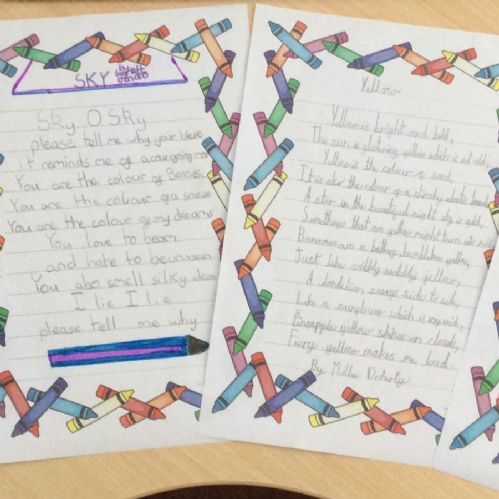 SKY
Sky O Sky
please tell me why your blue
it reminds me of a cow going moo
You are the colour of
You are the colour of a
You are the colour of my dreams
You love to beam
and hate to be unseen
You also smell silky
I lie I lie
please tell me why
Yellow
Yellow is bright and bold,
The sun is glistening yellow which is not cold,
Yellow is the colour of sand,
It is also the colour of a stretchy elastic band,
A star in the beauty of night sky is
Something that are yellow might turn
Bananas are a buttery bumblebee yellow,
Just like wibbly wobbly jellow,
A dandelion sways side to side,
Like a sunflower which is very wide,
Pineapple yellow shine on clouds,
Fiery yellow makes me loud.
By Mollie Doherty